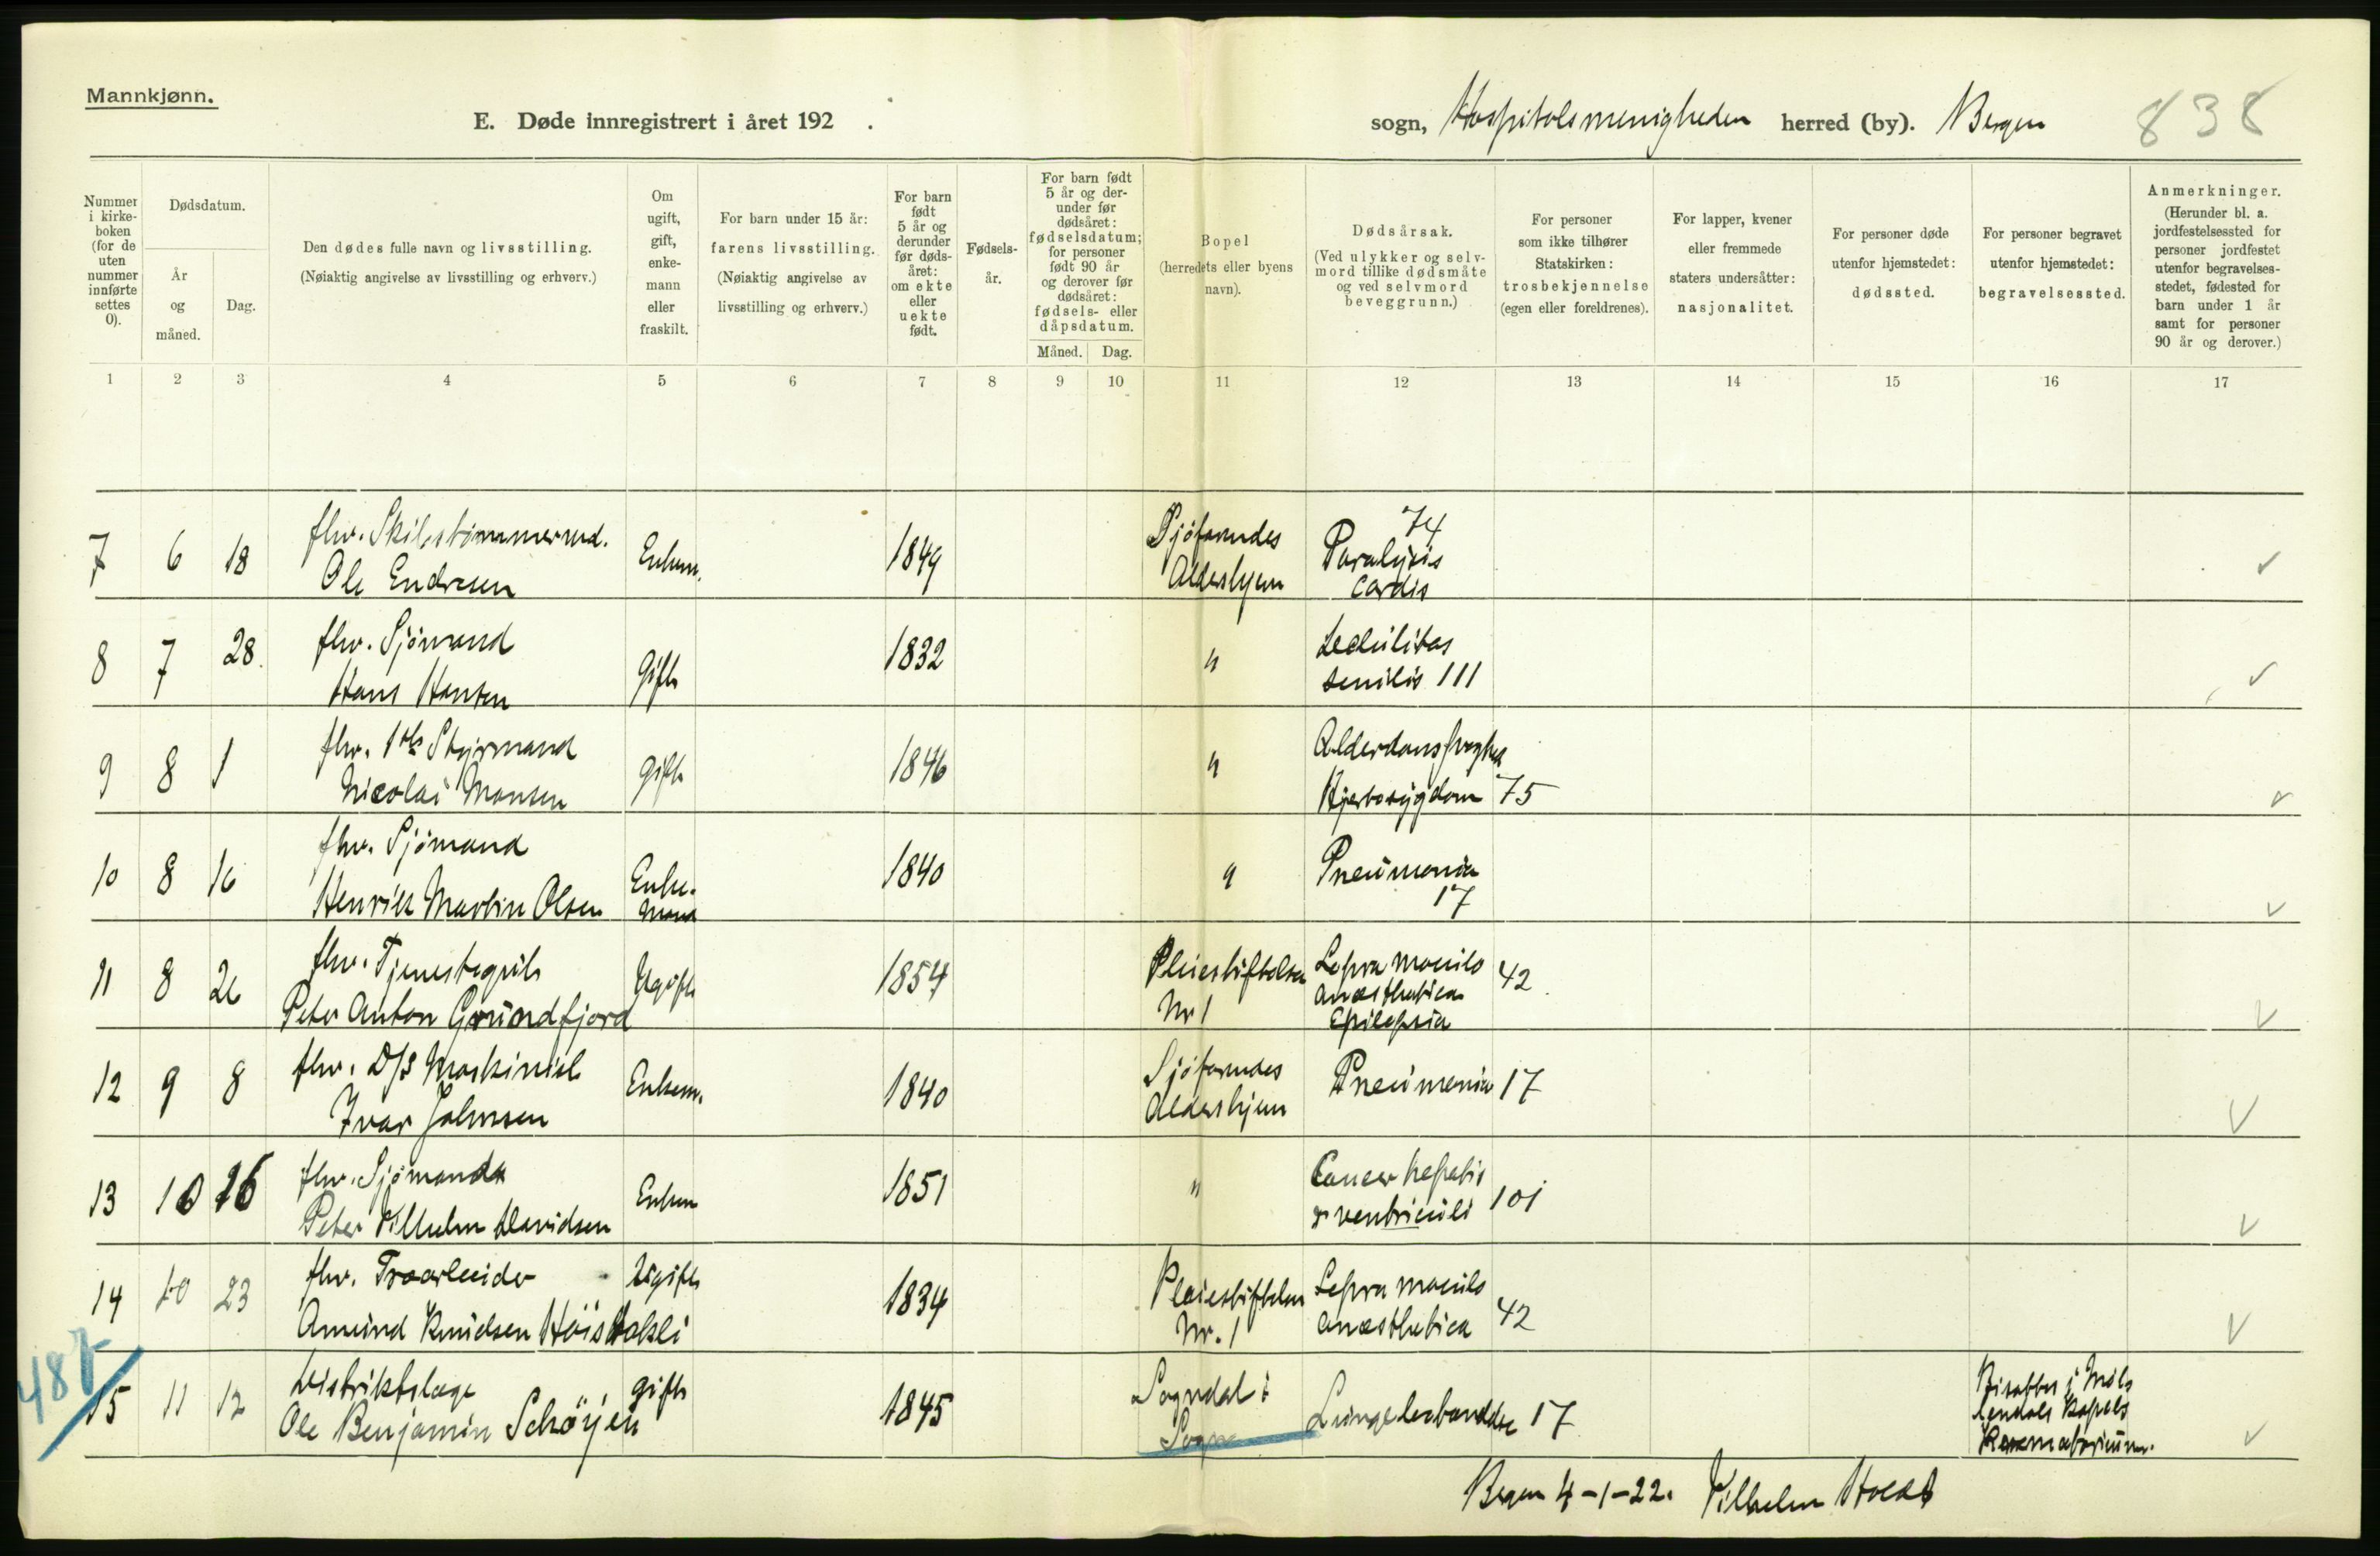 Mannkjønn.
E. Døde innregistrert i året 192 .
sogn, Hospitalsmenigheden herred (by). Bergen 838
Nummer i kirke-boken (for de uten nummer innførte settes 0).
Dødsdatum.
År og måned.
Dag.
Den dødes fulle navn og livsstilling.
(Nøiaktig angivelse av livsstilling og erhverv.)
Om ugift, gift, enke-mann eller fraskilt.
For barn under 15 år: farens livsstilling. (Nøiaktig angivelse av livsstilling og erhverv.)
For barn født 5 år og derunder før døds-året: om ekte eller uekte født.
Fødsels-år.
For barn født 5 år og der-under før dødsåret: fødselsdatum; for personer født 90 år og derover før dødsåret: fødsels- eller dåpsdatum.
Måned. Dag.
Bopel (herredets eller byens navn).
Dødsårsak. (Ved ulykker og selv-mord tillike dødsmåte og ved selvmord beveggrunn.)
For personer som ikke tilhører Statskirken: trosbekjennelse (egen eller foreldrenes).
For lapper, kvener eller fremmede staters undersåtter: nasjonalitet.
For personer døde utenfor hjemstedet: dødssted.
For personer begravet utenfor hjemstedet: begravelsessted.
Anmerkninger. (Herunder bl. a. jordfestelsessted for personer jordfestet utenfor begravelses-stedet, fødested for barn under 1 år samt for personer 90 år og derover.)
1 2 3 4 5 6 7 8 9 10 11 12 13 14 15 16 17
7 6 18 fhv. Skibstømmermd. Ole Endresen Enkem. 1849 Sjöfarendes Alderhjem Paralysis cordis 74
8 7 28. fhv. Sjömand Hans Hansen Gift 1832 " senilis 111
9 8 1 fhv. 1ste Styrmand Nicolai Monsen gift 1846 " Hjertesygdom 75
10 8 16 fhv. Sjömand Henrik Martin Olsen Enke-mand 1840 " Pneumonia 17
11 8 26 fhv. Tjenestegut Peter Anton Grundfjord Ugift 1854 Pleiestiftelsen Nr 1 Lepra maculo anæsthetica Epilepsia 42
12 9 8 fhv. D/S Maskinist Ivar Johnsen Enkem. 1840 Sjöfarendes Alderhjem Pneumonia 17
13 10 26 fhv. Sjömand Peter Vilhelm Davidsen Enkem 1851 " Cancer hepatis & ventriculi 101
14 10 23 fhv. Amund Knudsen Ugift 1834 Pleiestiftelsen Nr. 1 Lepra maculo anæsthetica 42
15 11 12 Distriktslæge Ole Benjamin Schörjen gift 1845 Sogndal i Sogn Lungebetændelse 17 Bisattes i Möllendals Kapels Krematorium.
487
Bergen 4-1-22. Vilhelm Holst